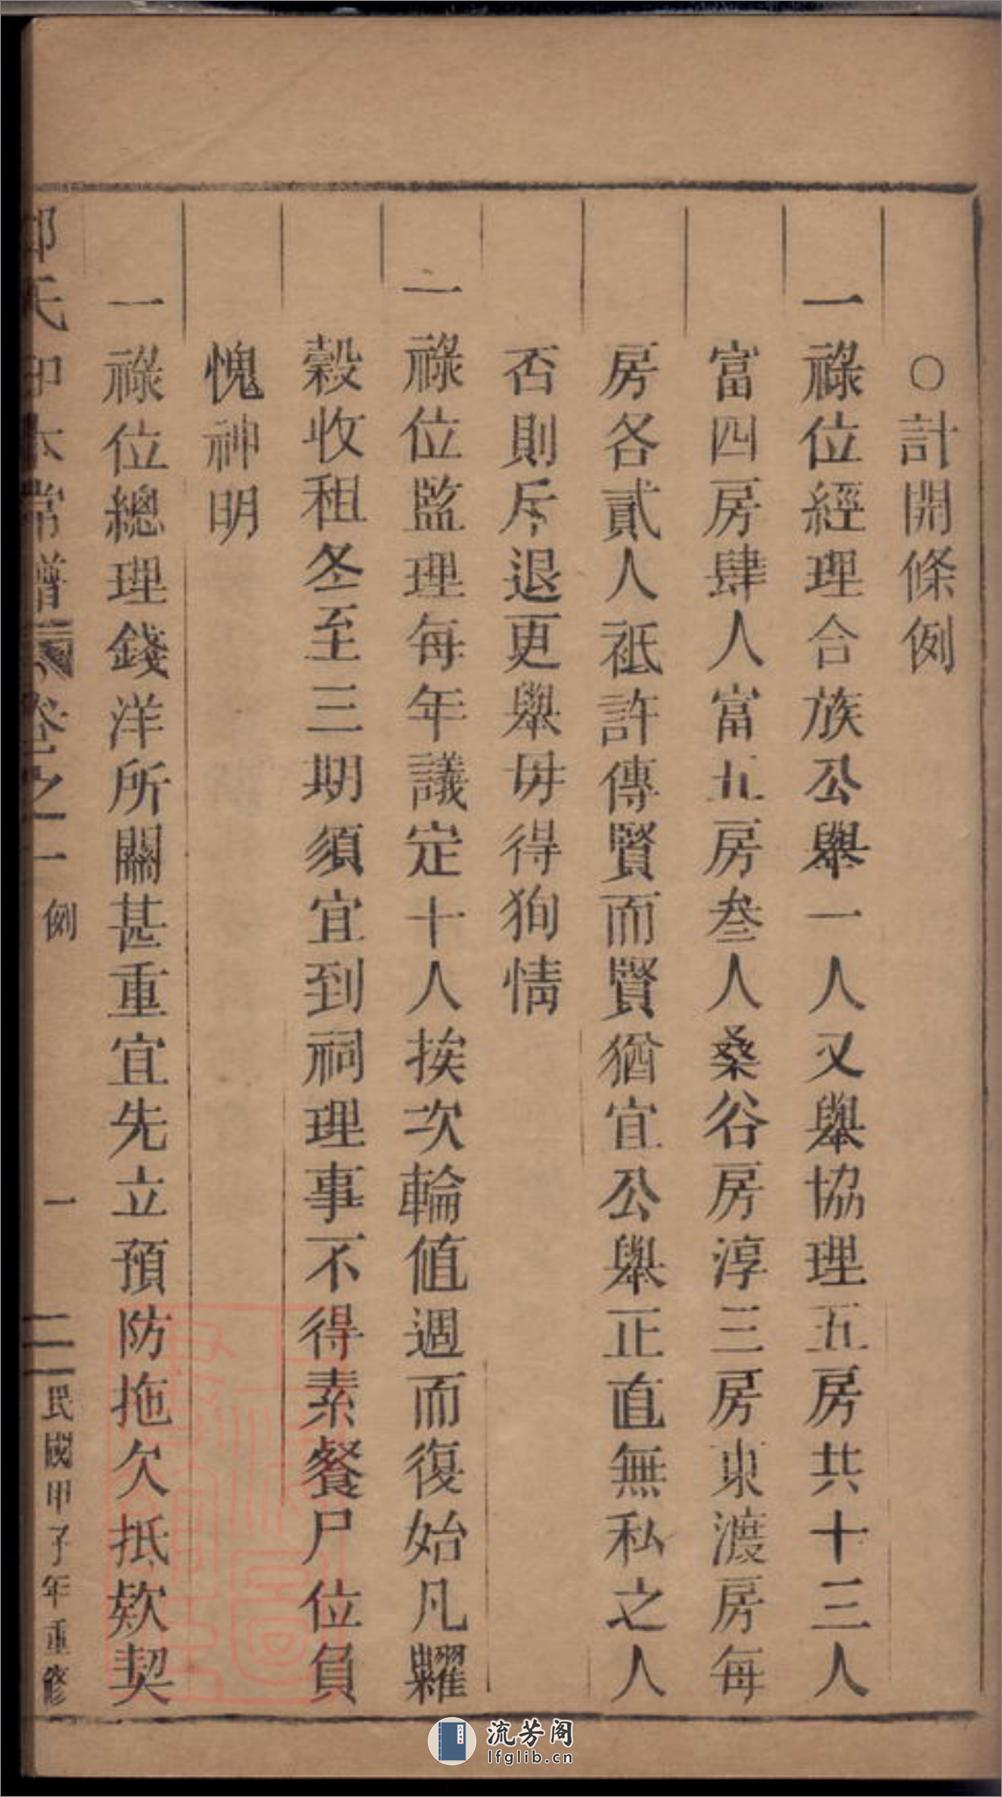 ○計開條例
一祿位經理合族公舉一人又舉協理五房共十三人
富四房肆人富五房叁人桑谷房淳三房東渡房每
房各貳人祗許傳賢而賢猶宜公舉正直無私之人
否則斥退更舉毋得狥情
一祿位監理每年議定十人挨次輪值週而復始凡糶
穀收租冬至三期須宜到祠理事不得素餐尸位負
愧神明
一祿位總理錢洋所關甚重宜先立預防拖欠抵欵契
氏 本常譜 卷之一 例 一 民國甲子年重修
流芳阁
lfglib.cn